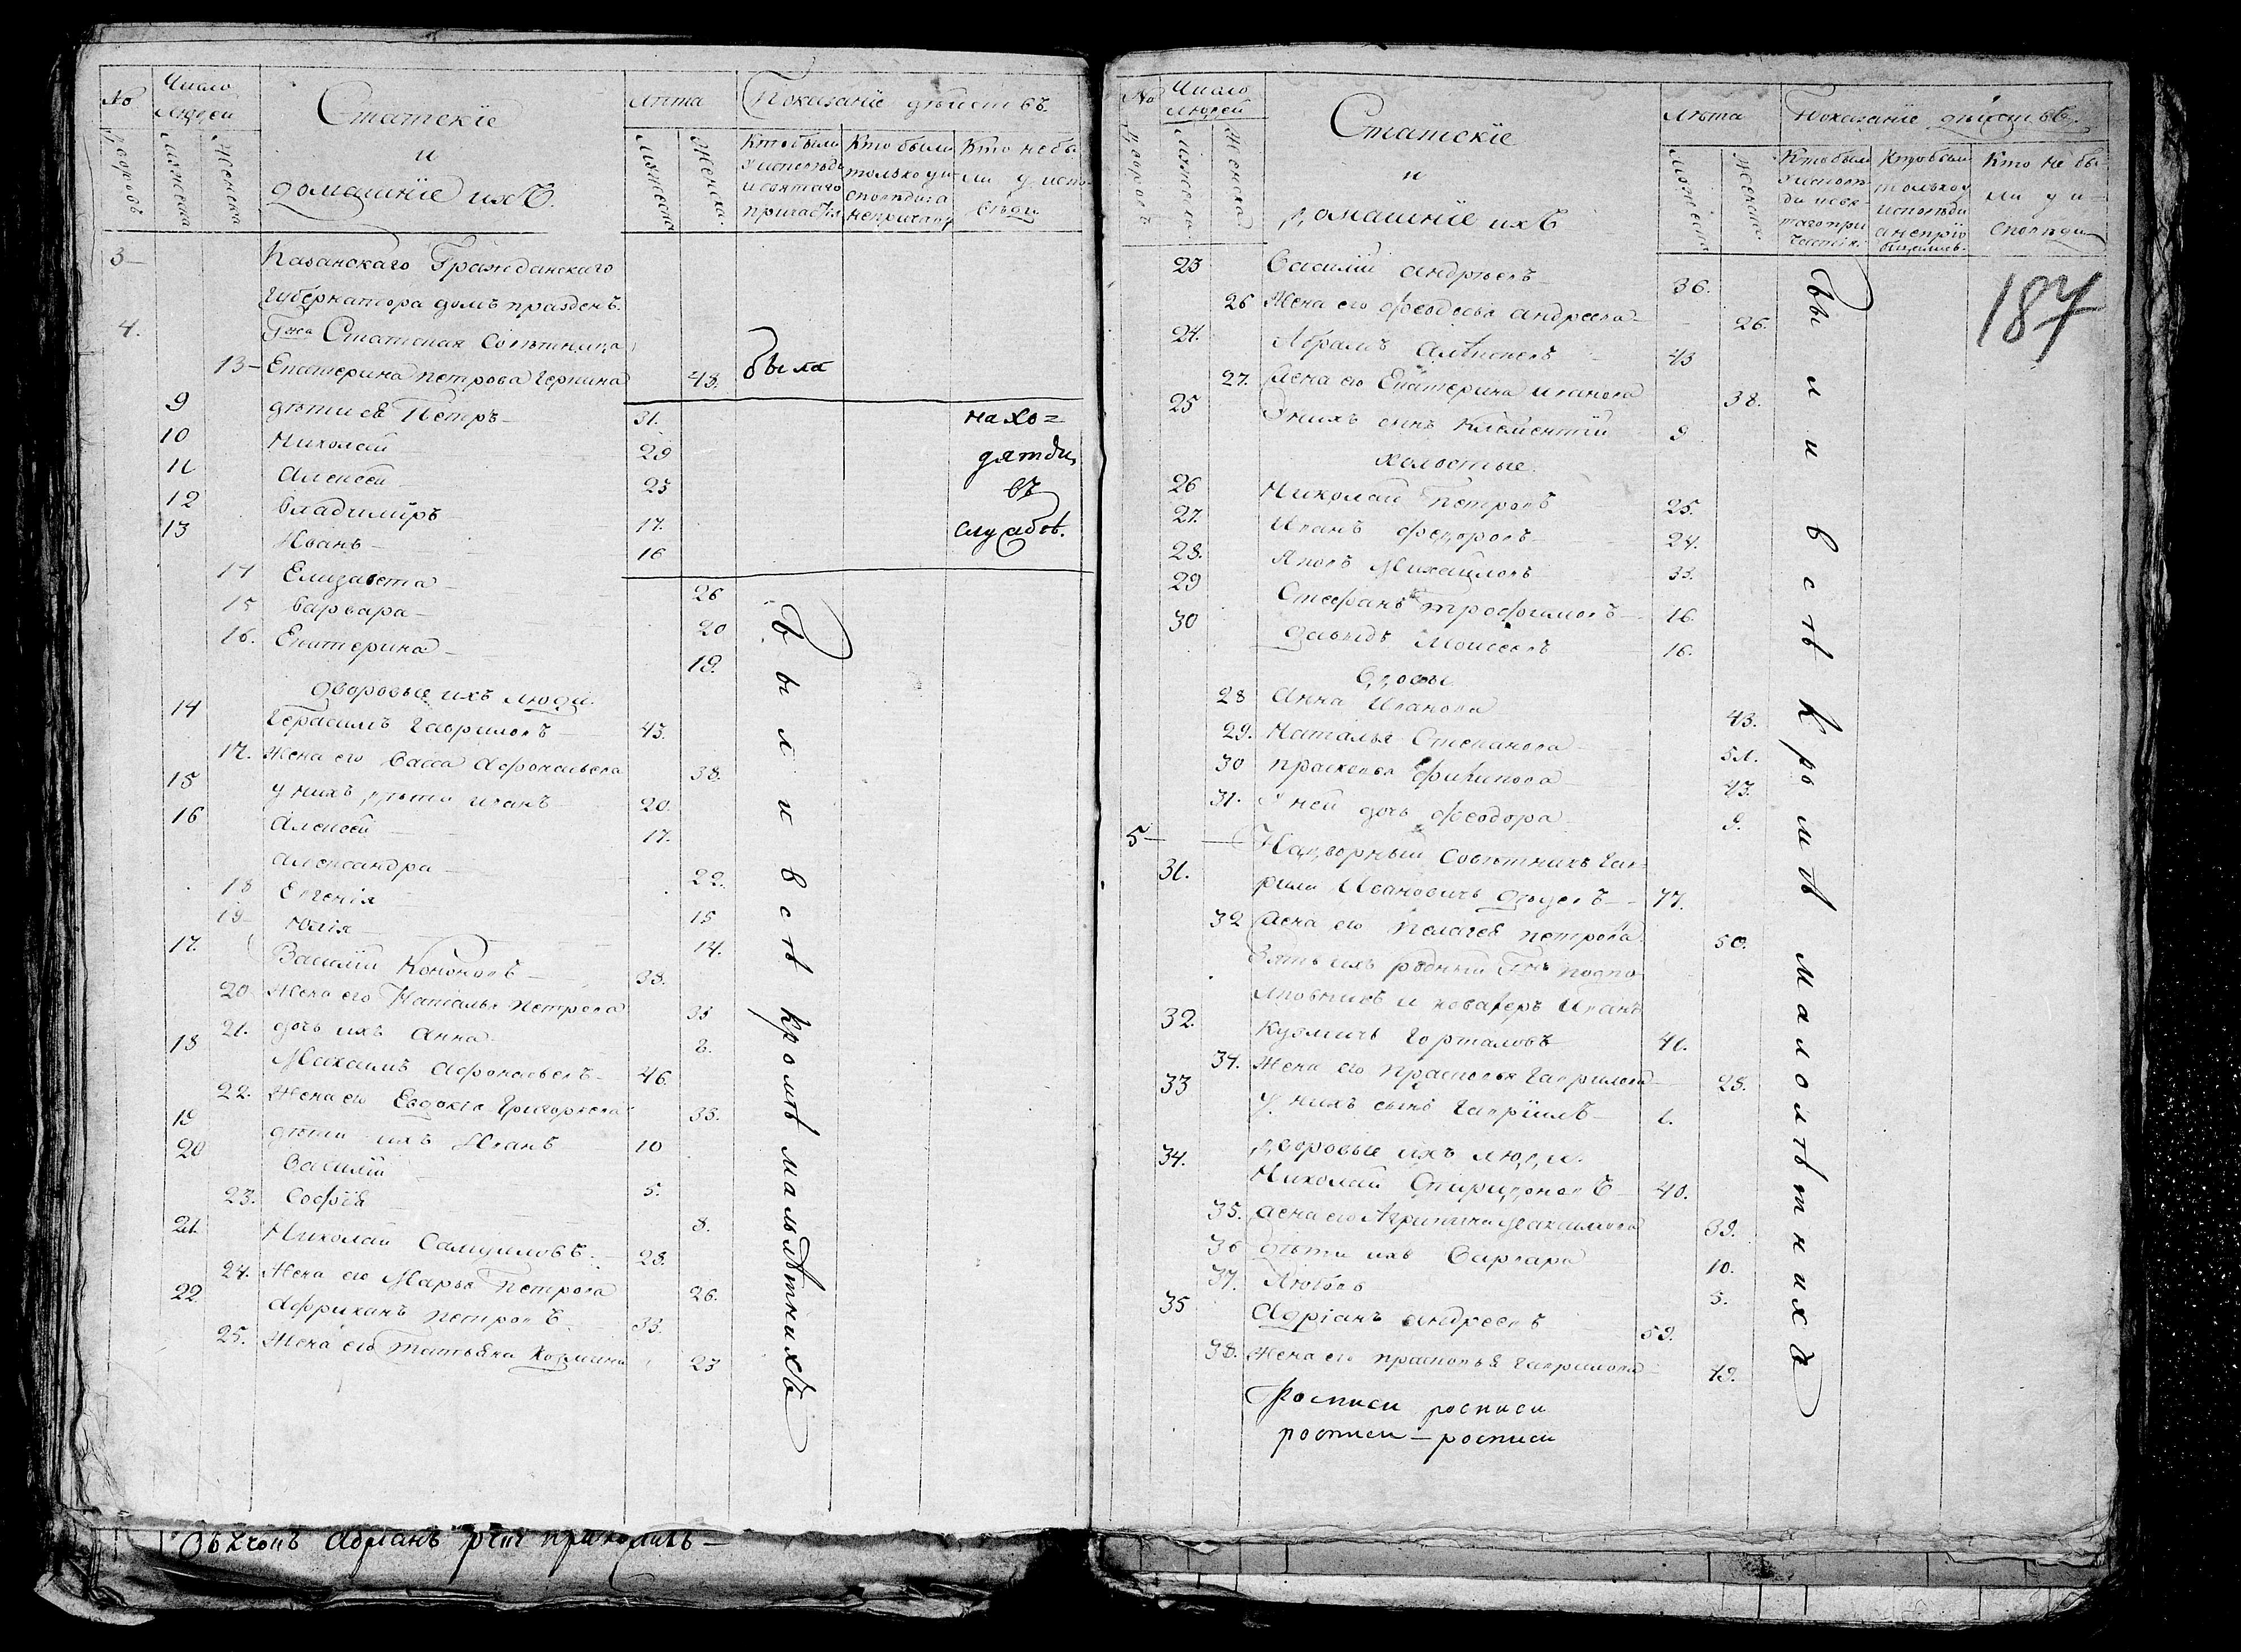 № Число людей Статскіе и домашніе ихъ. Лѣта Показаніе дѣйствъ.
дворовъ мужеска женска мужеска женска Кто были у исповѣди и святаго причастія Кто были только у исповѣди а не причаст Кто не были у исповѣди
3 Казанскаго Гражданскаго
Губернатора домъ празденъ.
4. Гжа Статская Совѣтница
13 Екатерина Петрова 48. была
9 дѣти ея Петръ 31. нахо=
10 Николай 29 дятся
11 Алексей 23 въ
12 Владимиръ 17. службѣ.
13 Иванъ 16
14 Елизавета 26
15 Варвара 20
16. Екатерина 19.
Были всѣ кромѣ малолѣтнихъ
дворовые ихъ люди
14 Герасимъ Гавриловъ 43.
17. Жена его Васса Афонасьева 38.
15 у нихъ дѣти Иванъ 20.
16 Алексей 17.
Александра 22.
18 Евгенія 15
19 Юлія 14.
17. Василій Кононовъ 38.
20 Жена его Наталья Петрова 33
21. дочь ихъ Анна 8.
18 Максимъ Афонасьевъ 46.
22. Жена его Евдокія Григорьева 33.
19 дѣти ихъ Иванъ 10
20 Василій 5.
23. Софія 8.
21. Николай Самуиловъ 28.
24. Жена его Марья Петрова 26.
22. Африканъ Петровъ 33.
25. Жена его Татьяна Козмина 23
Адріанъ
№ Число людей Статскіе и домашніе ихъ Лѣта Показаніе дѣйствъ.
дворовъ мужеска женска мужеска женска Кто были у исповѣди и святаго причастія Кто были только у исповѣди а не пріобщались Кто не были у исповѣди
187
23 Василій Андреевъ 36.
26 Жена его Феодосья Андреева 26.
24. Абрамъ Алексеевъ 43
27. Жена его Екатерина Иванова 38.
25 У нихъ сынъ Климентій 9
холостые.
26 Николай Петровъ 25.
27. Иванъ Федоровъ 24.
28. Яковъ Михайловъ 33.
29 Стефанъ Трофимовъ 16.
30 Давыдъ Моисеевъ 16.
Вдовы
28 Анна Иванова 43.
29. Наталья Степанова 51.
30 Прасковья Филипова 43.
31. У ней дочь Феодора 9.
5 Надворный Совѣтникъ Гав-
31. рила Ивановичь 77.
32 Жена его Пелагея Петрова 50.
Зять ихъ родный Гнъ Подпо-
лковникъ и кавалеръ Иванъ
32. Кузмичь Горталовъ 41.
34. Жена его Прасковья Гаврилова 28.
33 У нихъ сынъ Гавріилъ 1.
дворовые ихъ люди.
34. Николай Спиридоновъ 40.
35. Жена его Агрипина Максимова 39.
36 дѣти ихъ Варвара 10.
37. Любовь 5.
35 Адріанъ Андреевъ 59.
38. Жена его Прасковья Гаврилова 49.
Были всѣ кромѣ малолѣтнихъ
Росписи росписи
росписи – росписи